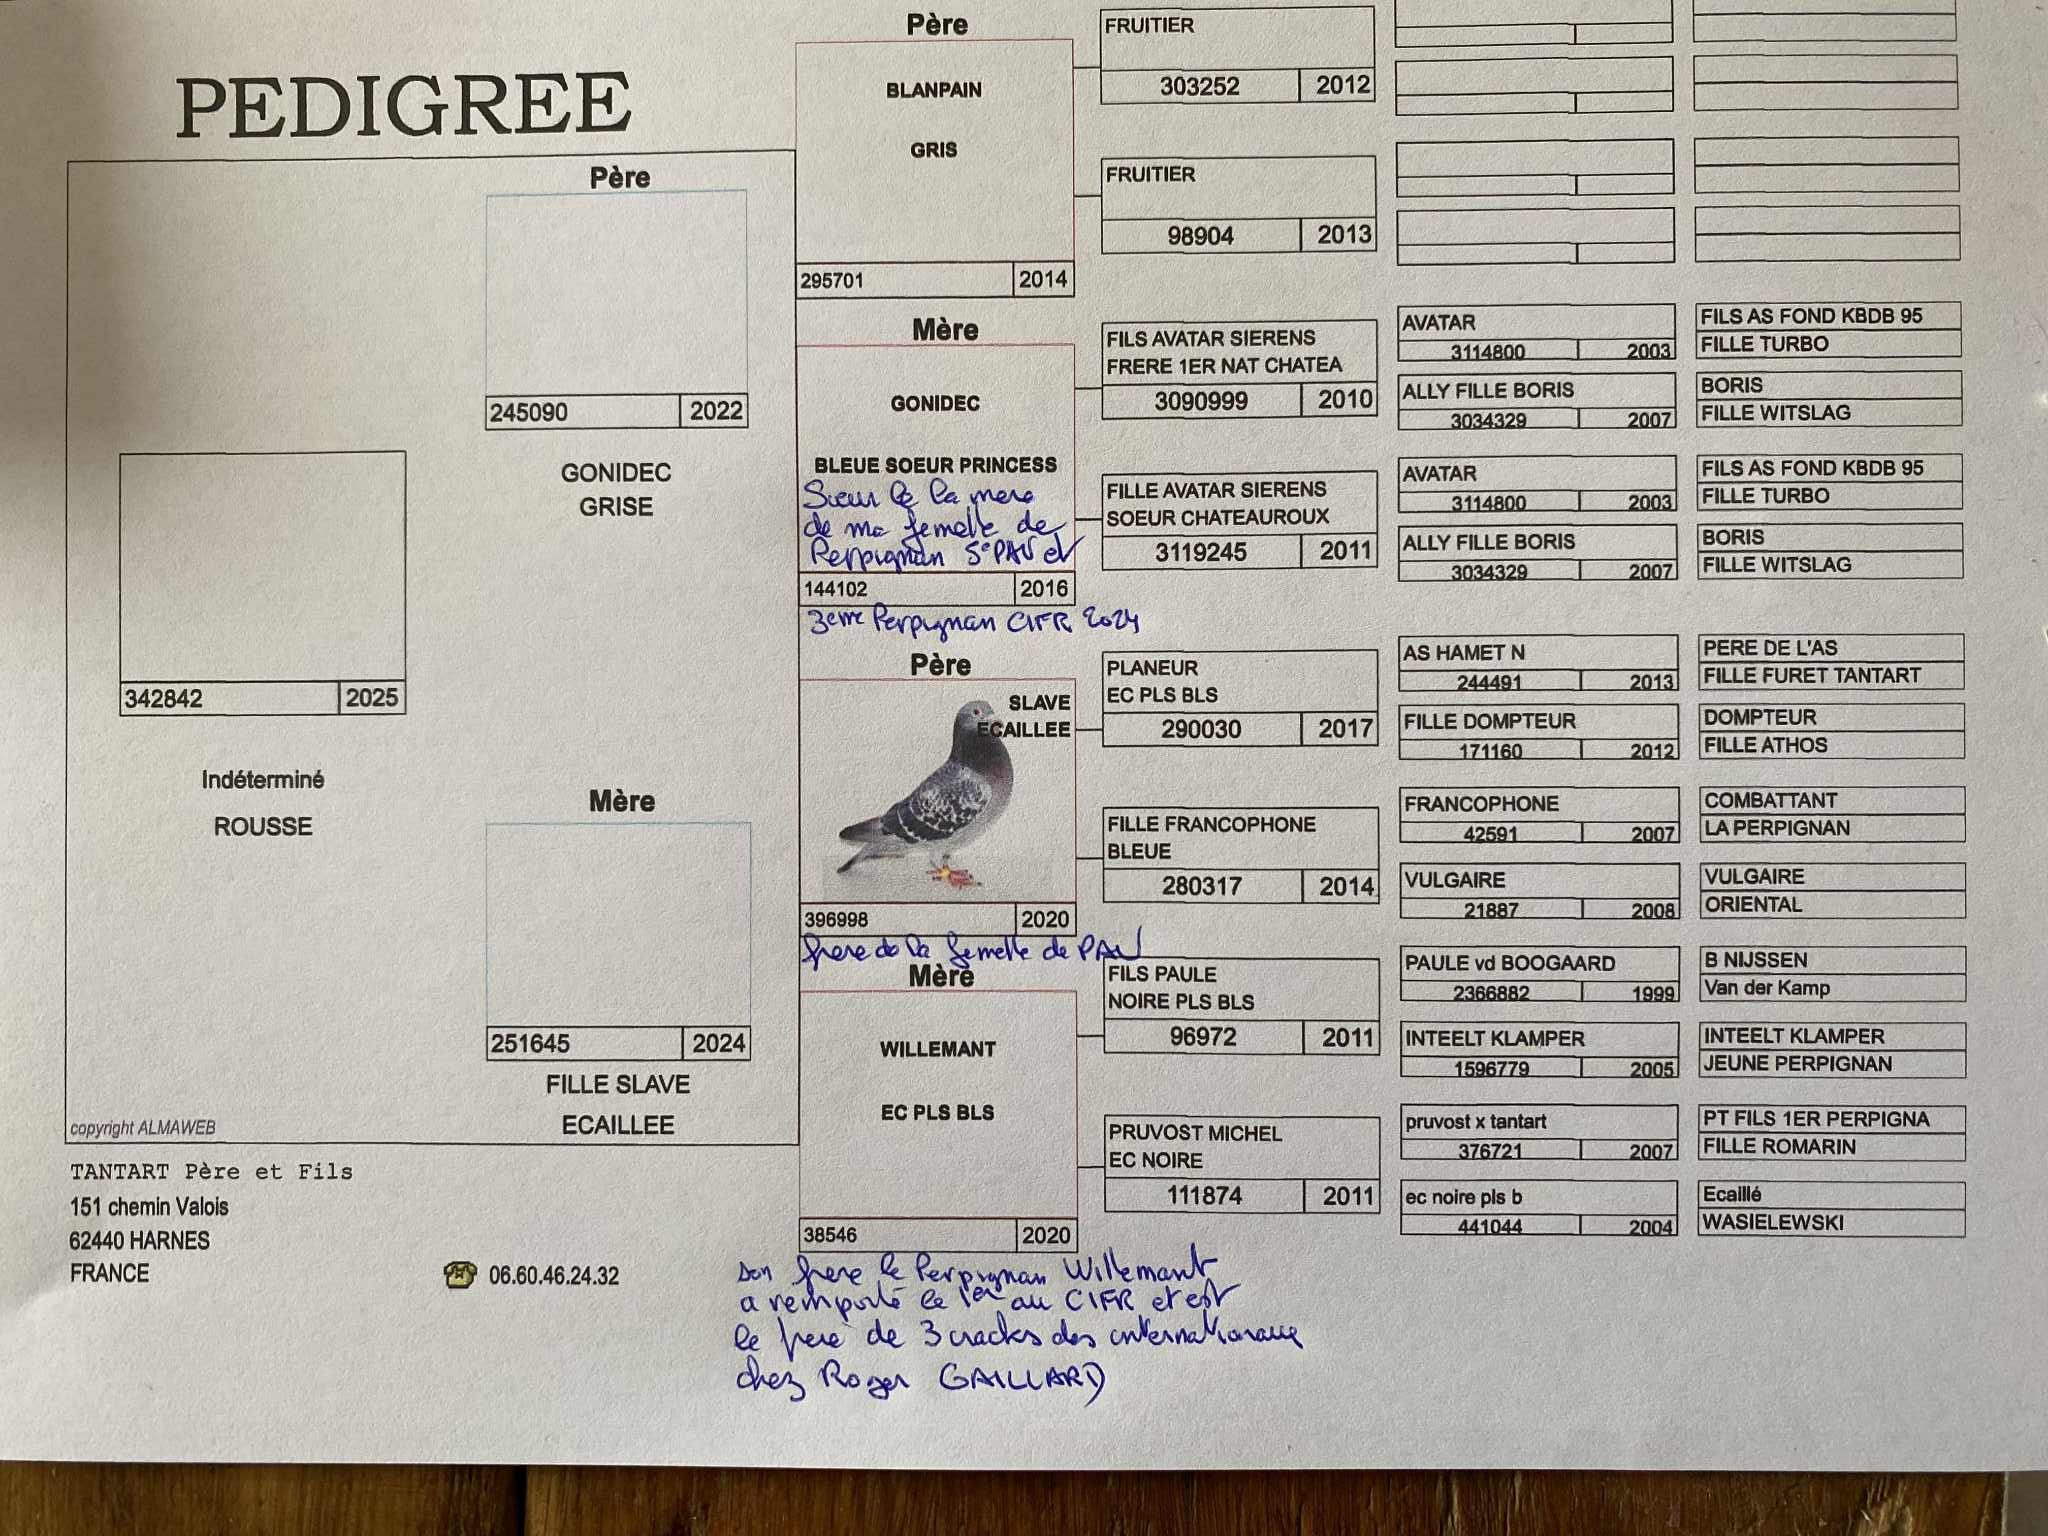 PEDIGREE
Père
245090 2022
GONIDEC
GRISE
342842 2025
Indéterminé
ROUSSE
Mère
251645 2024
FILLE SLAVE
ECAILLEE
copyright ALMAWEB
TANTART Père et Fils
151 chemin Valois
62440 HARNES
FRANCE
06.60.46.24.32
Père
BLANPAIN
GRIS
295701 2014
Mère
GONIDEC
BLEUE SOEUR PRINCESS
Sœur de la mere
de ma femelle de
Perpignan 5e PAU et
144102 2016
3eme Perpignan CIFR 2024
Père
SLAVE
ECAILLEE
396998 2020
frere de la femelle de PAU
Mère
WILLEMANT
EC PLS BLS
38546 2020
son frere le Perpignan Willemant
a remporté le 1er au CIFR et est
le frere de 3 cracks des internationaux
chez Roger GAILLARD
FRUITIER
303252 2012
FRUITIER
98904 2013
FILS AVATAR SIERENS
FRERE 1ER NAT CHATEA
3090999 2010
FILLE AVATAR SIERENS
SOEUR CHATEAUROUX
3119245 2011
PLANEUR
EC PLS BLS
290030 2017
FILLE FRANCOPHONE
BLEUE
280317 2014
FILS PAULE
NOIRE PLS BLS
96972 2011
PRUVOST MICHEL
EC NOIRE
111874 2011
AVATAR
3114800 2003
ALLY FILLE BORIS
3034329 2007
AVATAR
3114800 2003
ALLY FILLE BORIS
3034329 2007
AS HAMET N
244491 2013
FILLE DOMPTEUR
171160 2012
FRANCOPHONE
42591 2007
VULGAIRE
21887 2008
PAULE vd BOOGAARD
2366882 1999
INTEELT KLAMPER
1596779 2005
pruvost x tantart
376721 2007
ec noire pls b
441044 2004
FILS AS FOND KBDB 95
FILLE TURBO
BORIS
FILLE WITSLAG
FILS AS FOND KBDB 95
FILLE TURBO
BORIS
FILLE WITSLAG
PERE DE L'AS
FILLE FURET TANTART
DOMPTEUR
FILLE ATHOS
COMBATTANT
LA PERPIGNAN
VULGAIRE
ORIENTAL
B NIJSSEN
Van der Kamp
INTEELT KLAMPER
JEUNE PERPIGNAN
PT FILS 1ER PERPIGNA
FILLE ROMARIN
Ecaillé
WASIELEWSKI